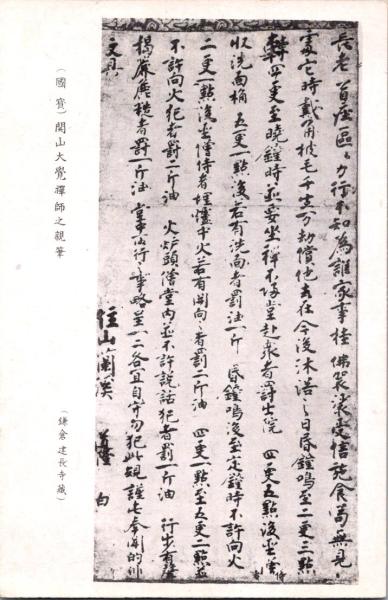 長老首座區〻力行不知為誰家事挂佛袈裟受信施食苟無見
處它時戴角披毛千生万劫償他去在今後沐浴之日昏鐘鳴至二更三點
轉四更至曉鐘時並要坐禪不歸堂赴衆者罰出院 四更五點後
收洗面桶 五更一點後若有洗面者罰油一斤 昏鐘鳴後至定鐘時不許向火
二更一點後聖僧侍者埋爐中火若有開向之者罰二斤油 四更一點至五更一點並
不許向火犯者罰二斤油 火炉頭僧堂内並不許説話犯者罰一斤油 行步有聲
揭簾麁糙者罰一斤油 堂中所行事略呈一二各宜自守勿犯此規謹七奉聞的非
文具
住山蘭溪 道隆 白
(國寶)開山大覺禪師之親筆
(鎌倉建長寺藏)